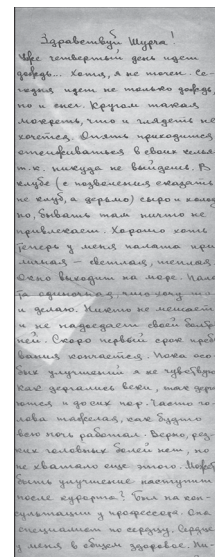 Здравствуй Шурча!
Уже четвертый день идет
дождь... Хотя, я не точен. Се-
годня идет не только дождь,
но и снег. Кругом такая
мокреть, что и глядеть не
хочется. Опять приходится
отсиживаться в своих кельях
т.к. никуда не выйдешь. В
клубе (с позволения сказать
не клуб, а дерьмо) сыро и холод
но, бывать там ничто не
привлекает. Хорошо хоть
теперь у меня палата при
личная - светлая, теплая.
Окно выходит на море. Пала
та одиночная, что хочу то
и делаю. Никто не мешает
и не надоедает своей болтов
ней. Скоро первый срок преб
вания кончается. Пока осо
бых улучшений я не чувствую
Как дергались веки, так дерга
ются и до сих пор. Часто го-
лова тяжелая, как будто
всю ночь работал. Верно, рез
ких головных болей нет, но
не хватало еще этого. Может
быть улучшение наступит
после курорта? Был на кон-
сультации у профессора. Она
специалист по сердцу. Сердце
у меня в общем здоровое. Ни-